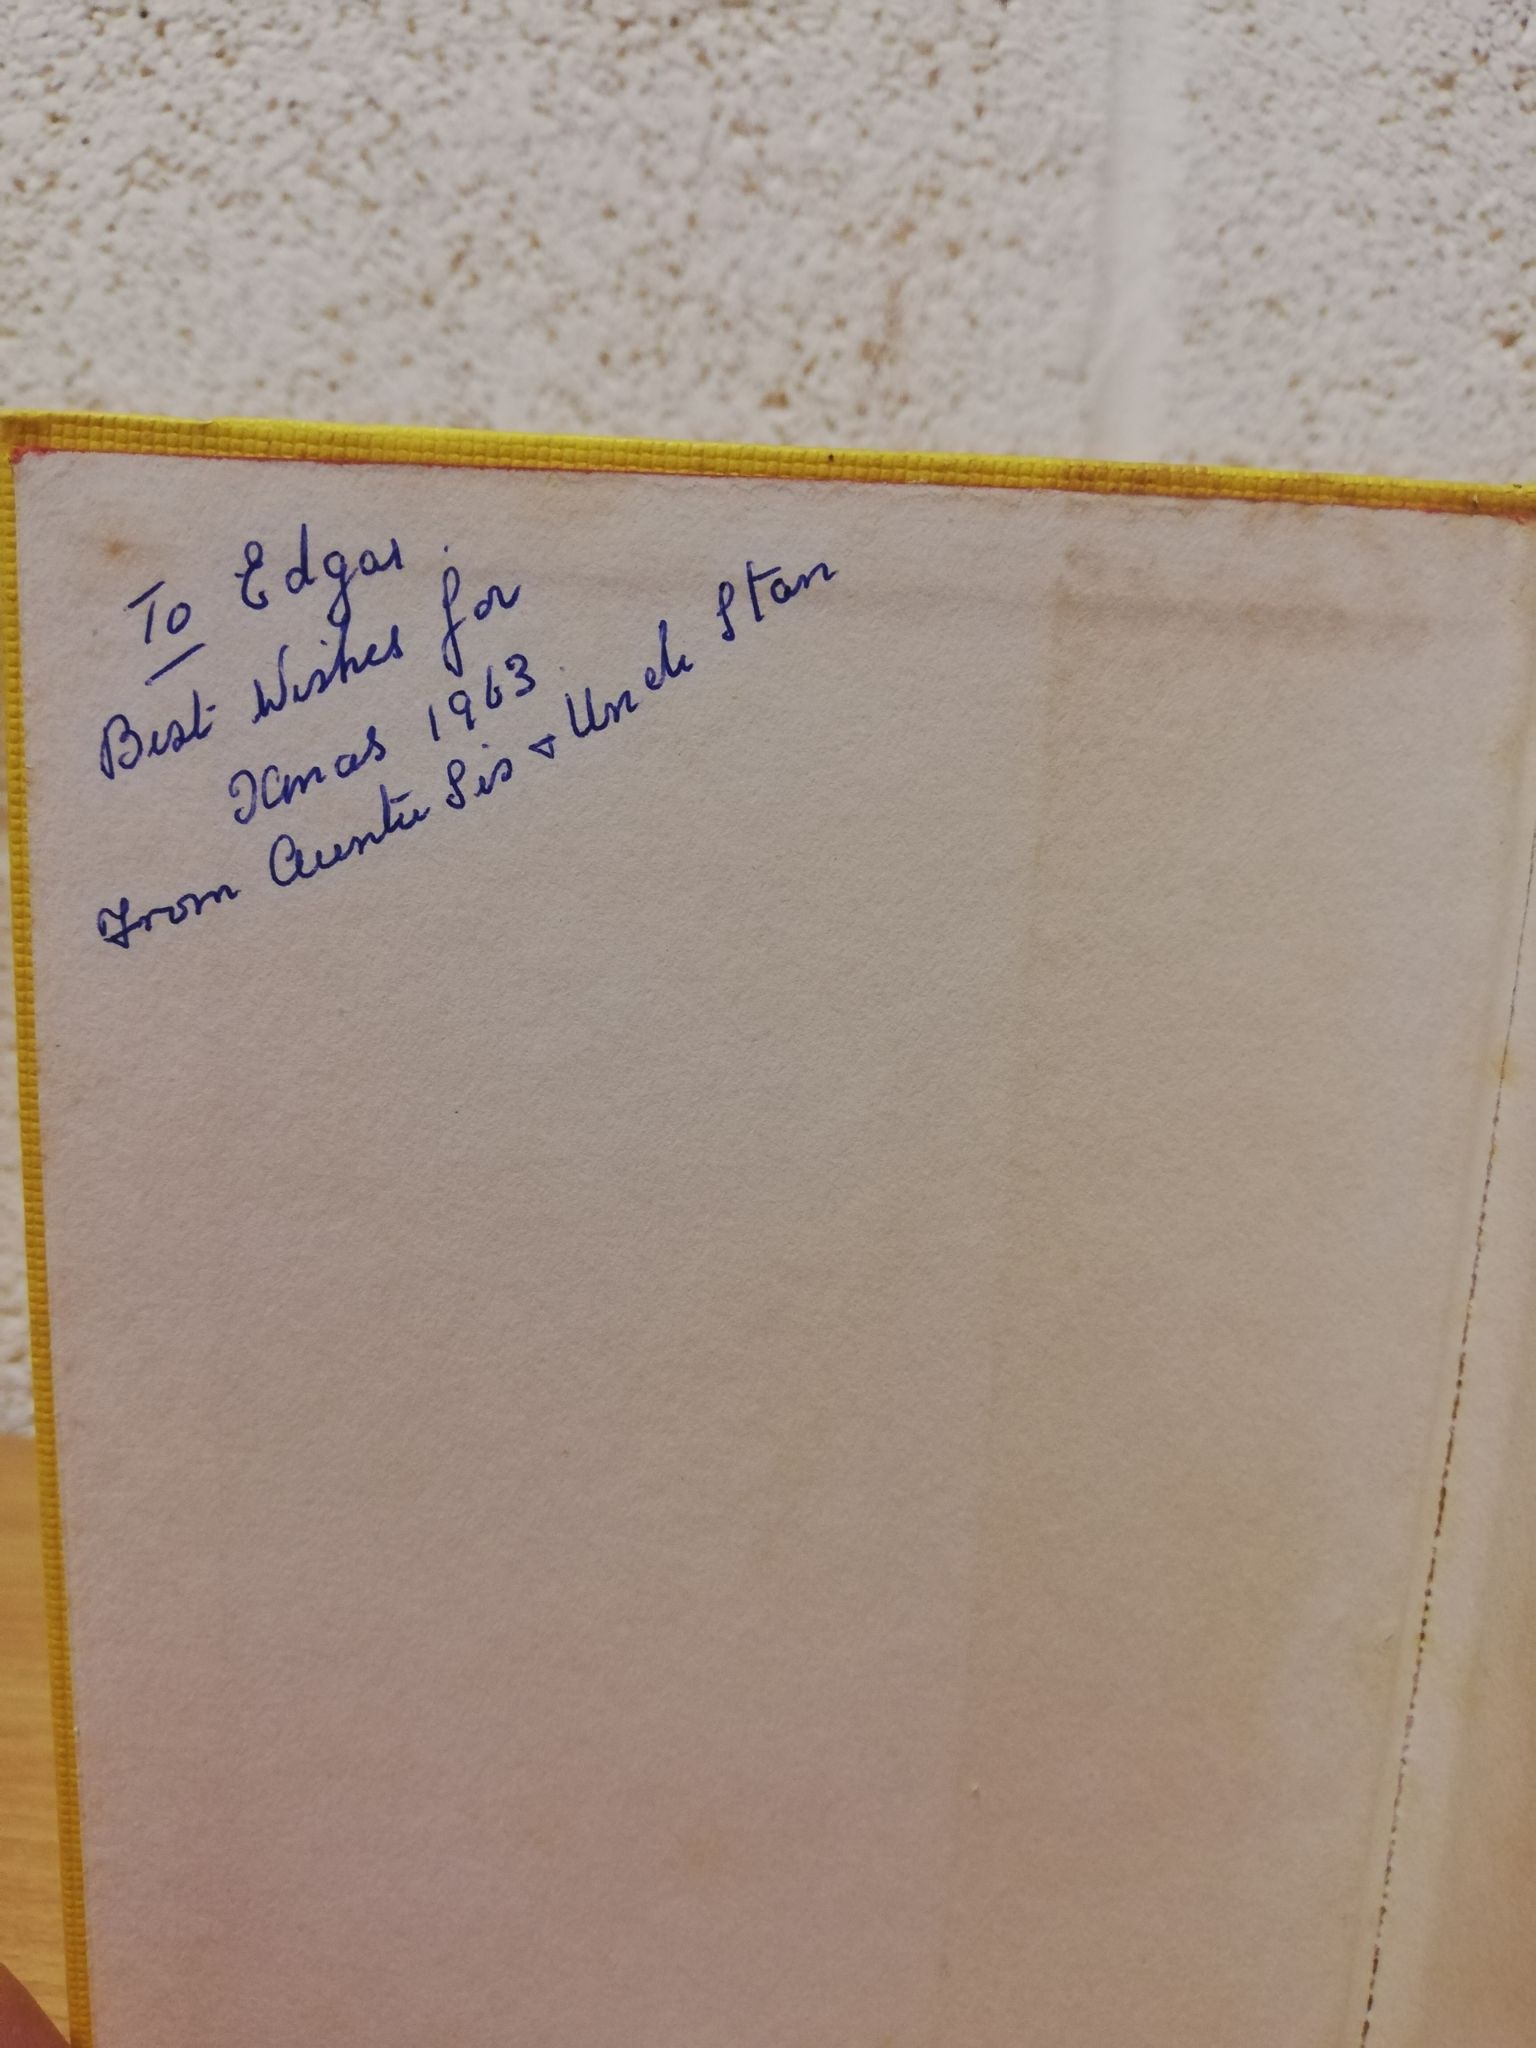 To Edgar.
Best Wishes for
Xmas 1963.
From Auntie Sis & Uncle Stan